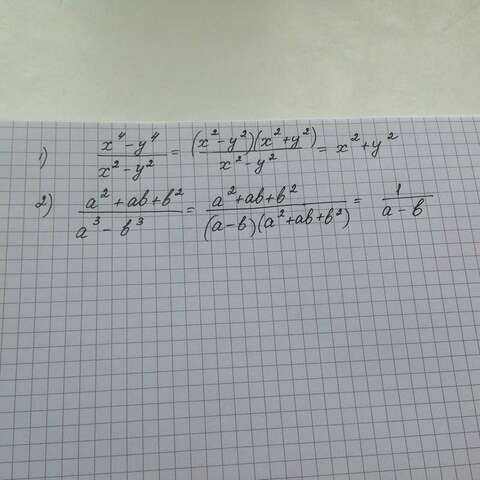 1) (x⁴-y⁴)/(x²-y²) = ((x²-y²)(x²+y²))/(x²-y²) = x²+y²
2) (a²+ab+b²)/(a³-b³) = (a²+ab+b²)/((a-b)(a²+ab+b²)) = 1/(a-b)